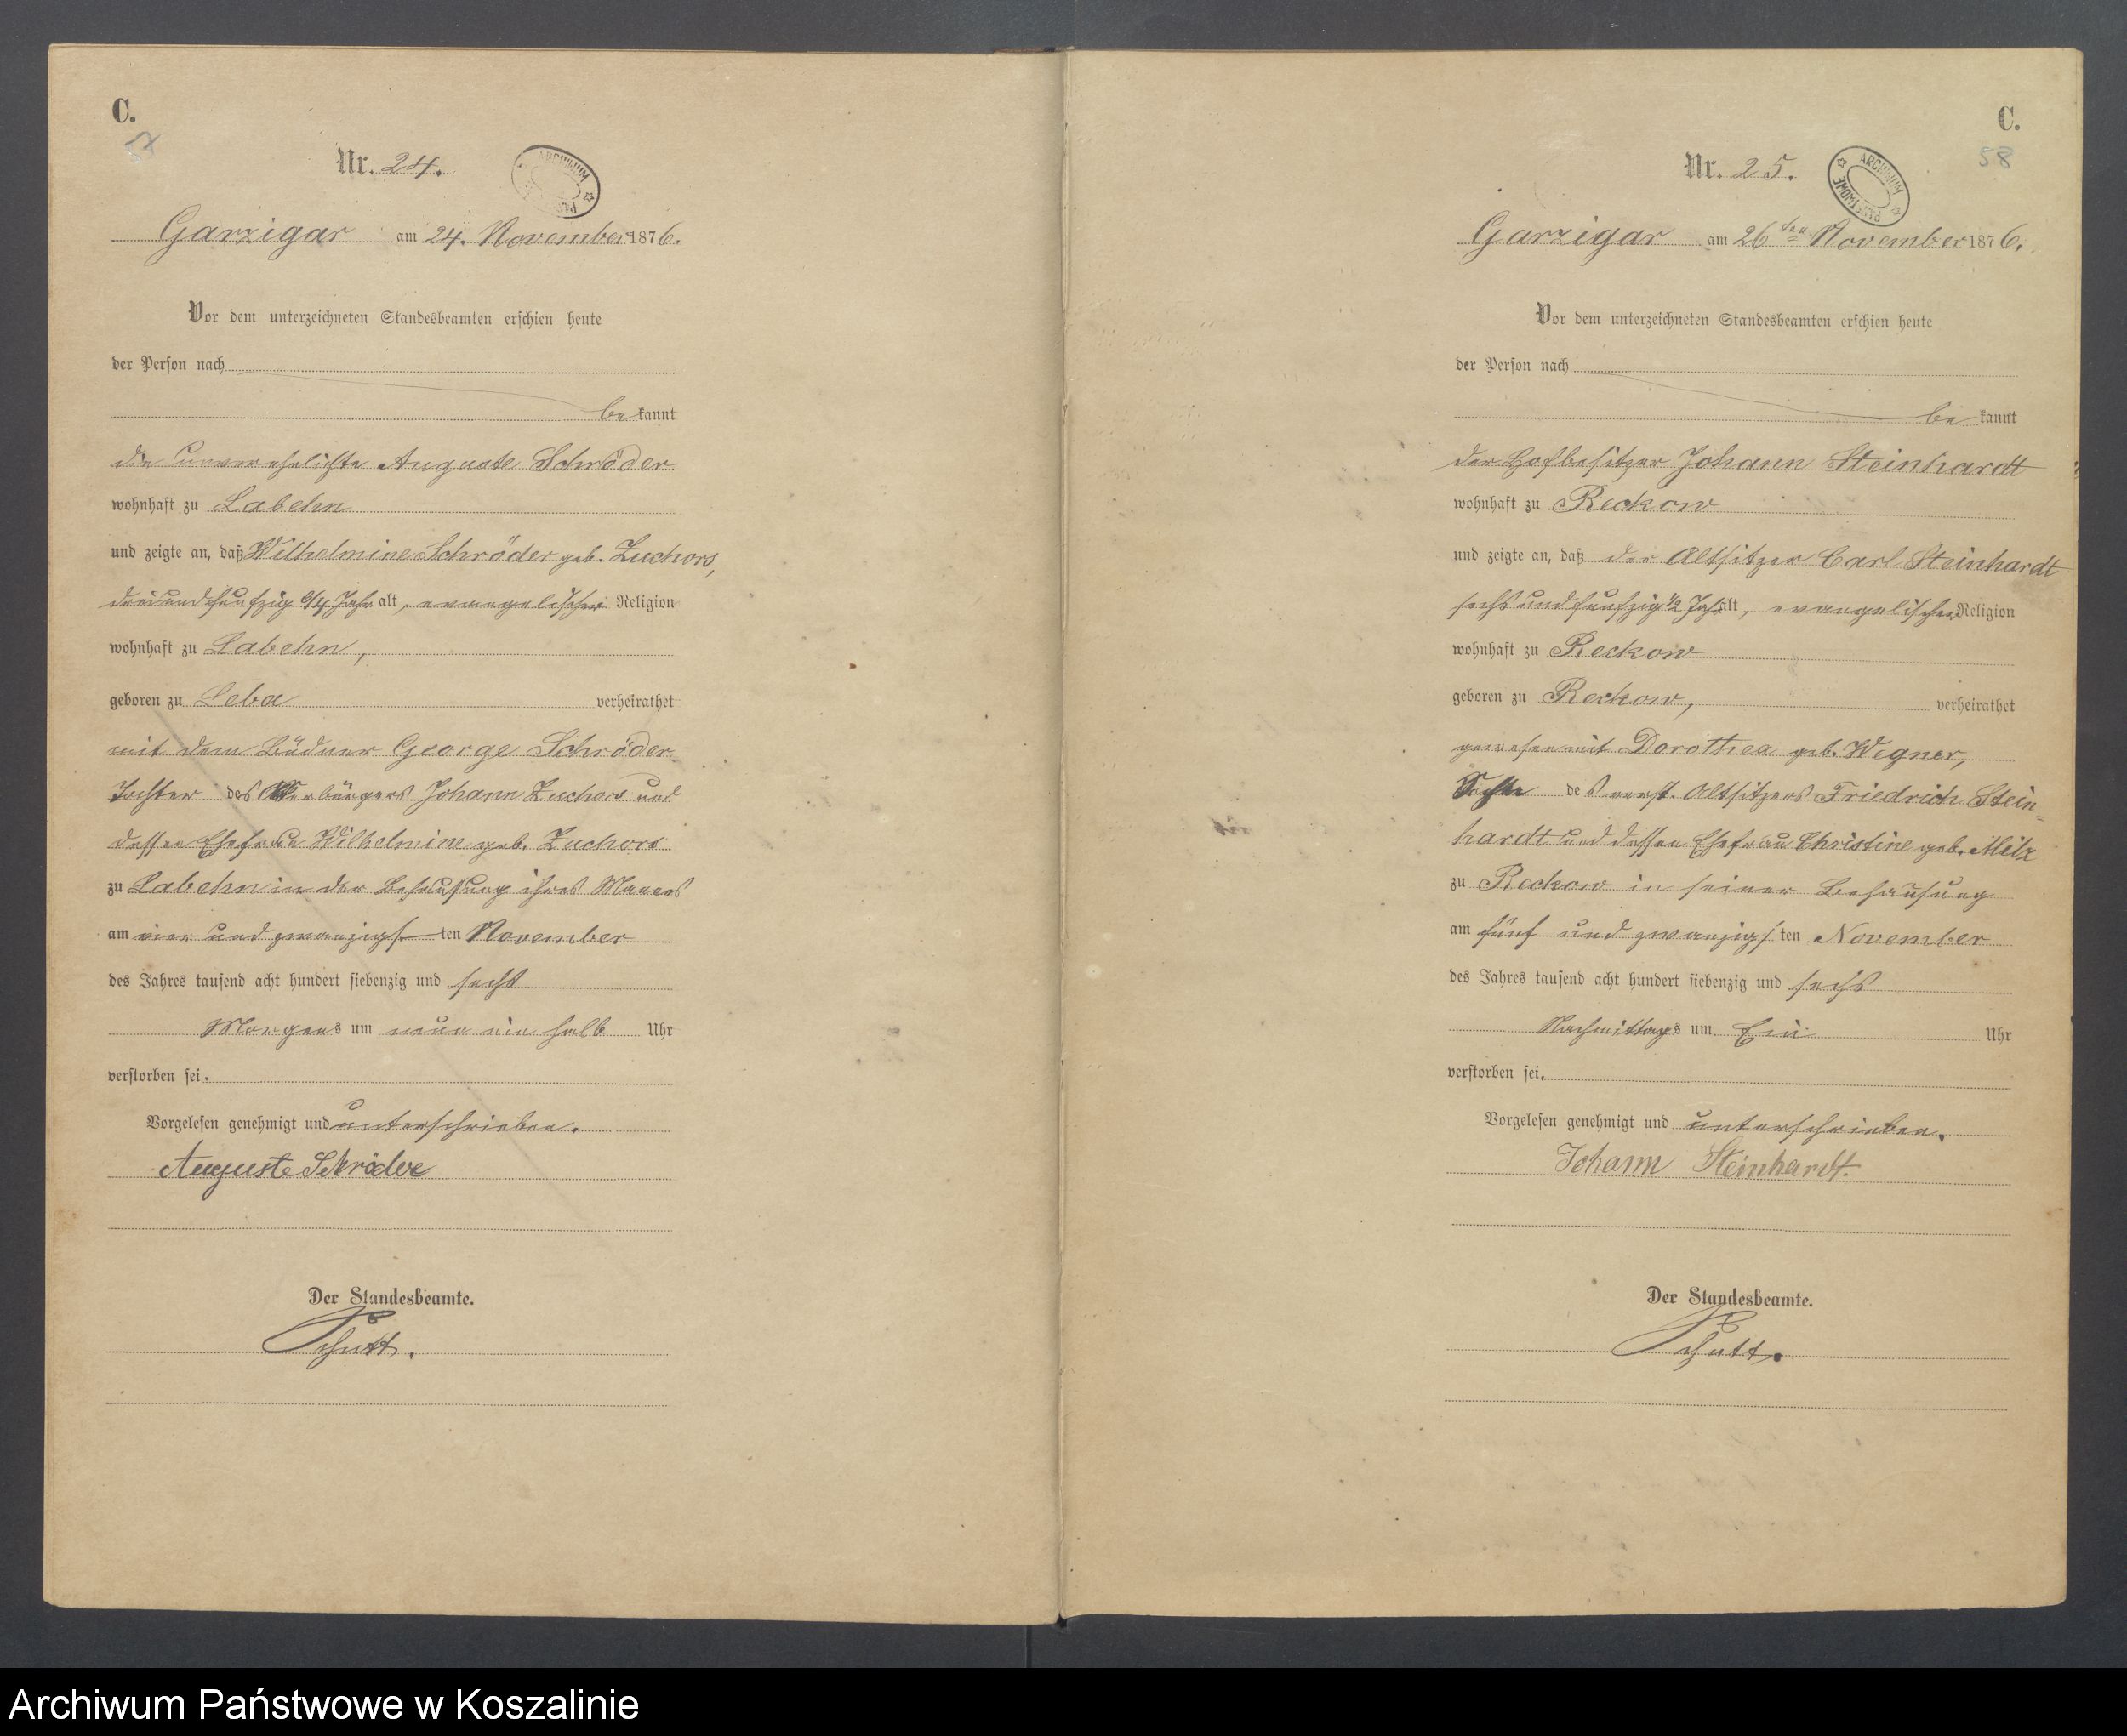 C.
57
Nr. 24.
ARCHIWUM PAŃSTWOWE
Garzigar am 24. November 1876.
Vor dem unterzeichneten Standesbeamten erschien heute
der Person nach
be kannt
die unverehelichte Auguste Schröder
wohnhaft zu Labehn
und zeigte an, daß Wilhelmine Schröder geb. Zuchors,
dreiundfünfzig Jahr alt, evangelischer Religion
wohnhaft zu Labehn,
geboren zu Leba verheirathet
mit dem Büdner George Schröder
Tochter des Johann Zuchors und
dessen Ehefrau Wilhelmine geb. Zuchors
zu Labehn in der Behausung ihres Mannes
am vier und zwanzigs ten November
des Jahres tausend acht hundert siebenzig und sechs
Morgens um neun ein halb Uhr
verstorben sei.
Vorgelesen genehmigt und unterschrieben.
Auguste Schröder
Der Standesbeamte.
Schutt.
C.
58
Nr. 25.
ARCHIWUM PAŃSTWOWE
Garzigar am 26ten November 1876.
Vor dem unterzeichneten Standesbeamten erschien heute
der Person nach
be kannt
der Hofbesitzer Johann Steinhardt
wohnhaft zu Reckow
und zeigte an, daß der Altsitzer Carl Steinhardt
sechsundfünfzig 1/2 Jahr alt, evangelischer Religion
wohnhaft zu Reckow
geboren zu Reckow, verheirathet
gewesen mit Dorothea geb. Wegner,
des verst. Altsitzers Friedrich Stein=
hardt und dessen Ehefrau Christine geb. Milz
zu Reckow in seiner Behausung
am fünf und zwanzigs ten November
des Jahres tausend acht hundert siebenzig und sechs
Nachmittags um Ein Uhr
verstorben sei.
Vorgelesen genehmigt und unterschrieben.
Johann Steinhardt.
Der Standesbeamte.
Schutt.
Archiwum Państwowe w Koszalinie